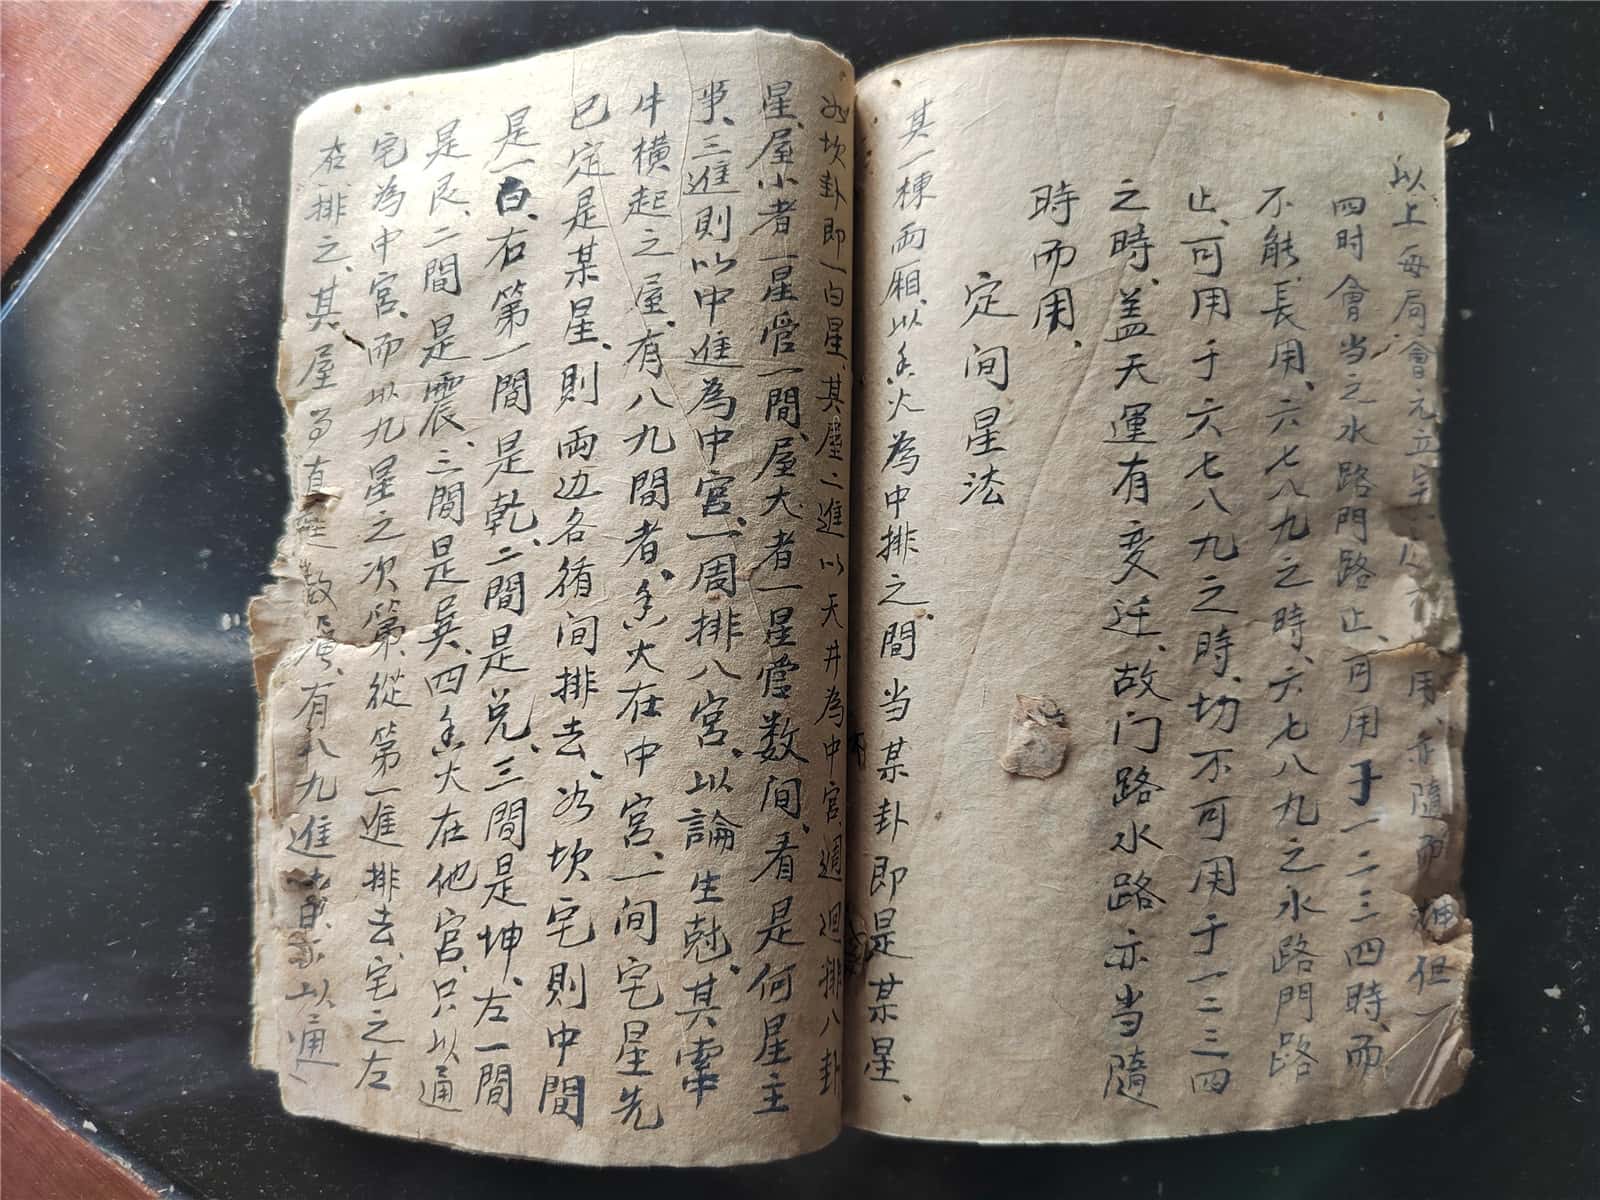 以上每局會元立宅以 用、亦隨而 但
四时會当之水路門路止、可用于一二三四時、而
不能長用、六七八九之時、六七八九之水路門路
止、可用于六七八九之時、切不可用于一二三四
之時、盖天運有变迁、故门路水路亦当隨
時而用、
定间星法
其一棟兩厢、以香火為中排之、間当某卦即是某星、
如坎卦即一白星、其屋二進以天井為中宮、週迴排八卦
星、屋小者一星管一間、屋大者一星管数间、看是何星主
事、三進則以中進為中宮、一周排八宮、以論生尅、其
牛橫起之屋、有八九間者、香火在中宮、一间宅星先
已定是某星、則兩边各循间排去、如坎宅則中間
是一白、右第一間是乾、二間是兑、三間是坤、左一間
是艮、二間是震、三間是巽、四香火在他宫、只以通
宅為中宮、而以九星之次第、從第一進排去、宅之左
右排之、其屋 直 数 、有八九進 以通